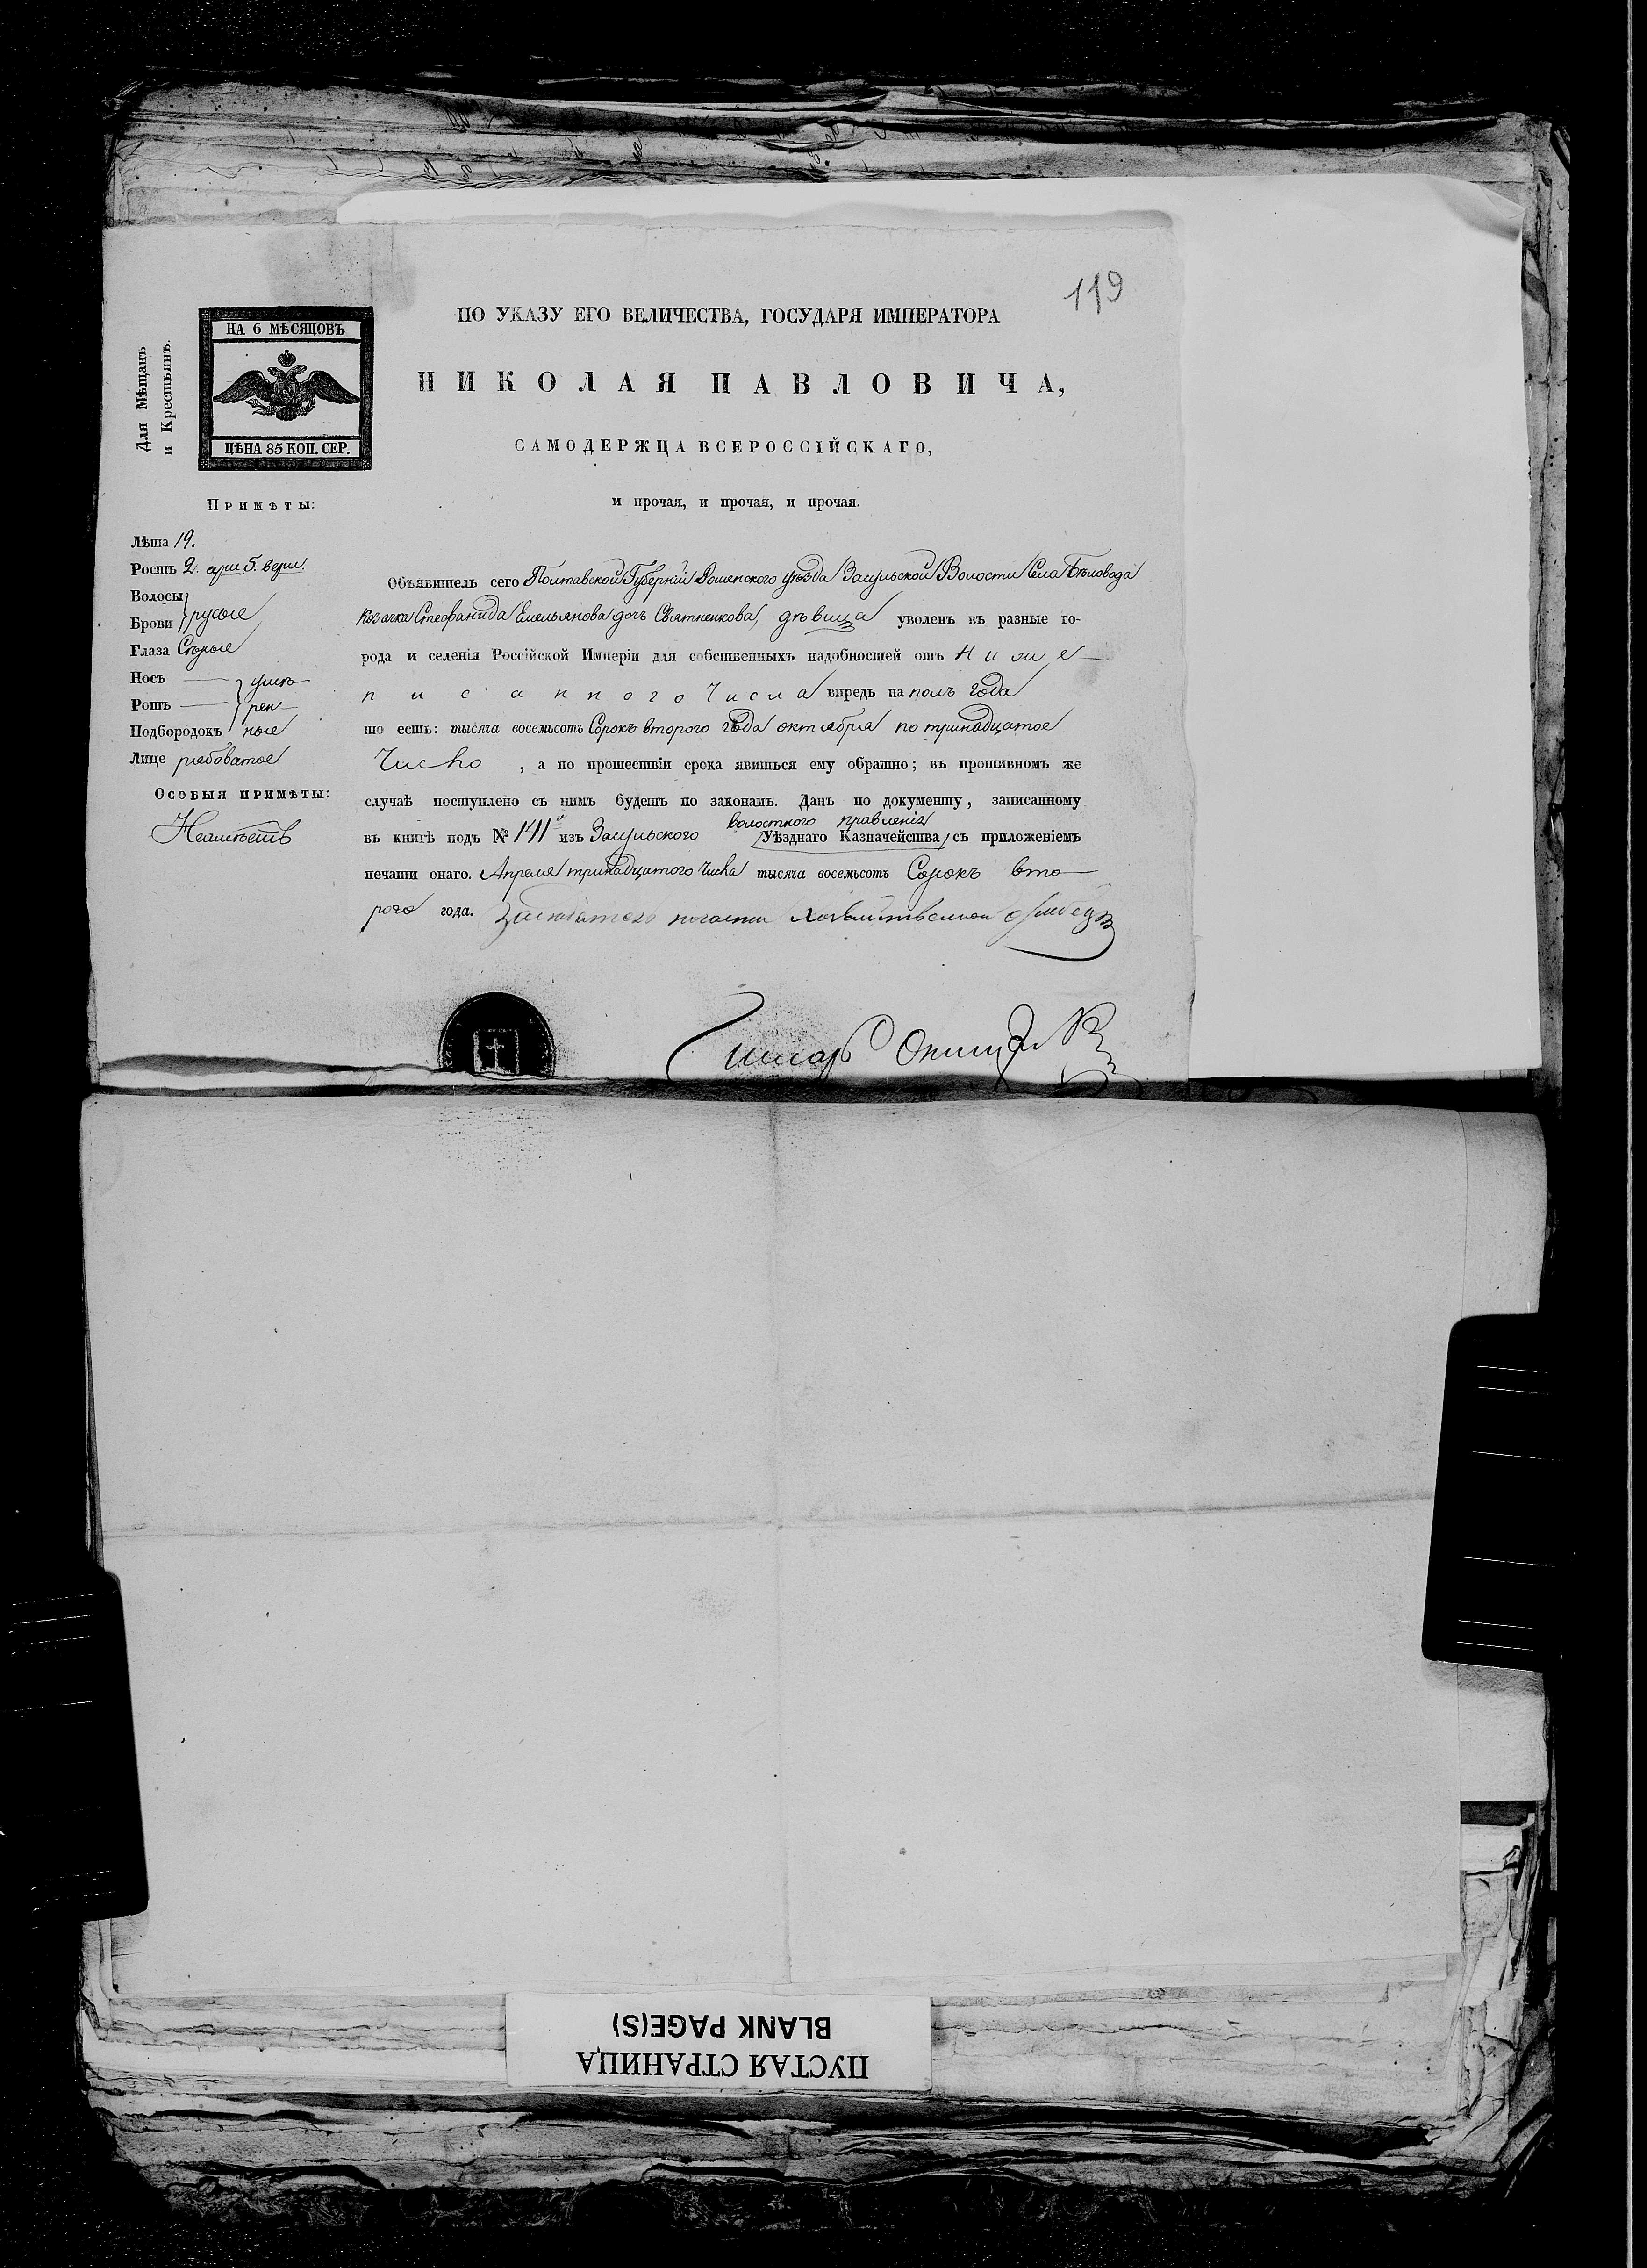 119
Для Мѣщанъ
и Крестьянъ.
НА 6 МѢСЯЦОВЪ
ЦѢНА 85 КОП. СЕР.
ПО УКАЗУ ЕГО ВЕЛИЧЕСТВА, ГОСУДАРЯ ИМПЕРАТОРА
НИКОЛАЯ ПАВЛОВИЧА,
САМОДЕРЖЦА ВСЕРОССІЙСКАГО,
и прочая, и прочая, и прочая.
Примѣты:
Лѣта 19.
Ростъ 2. арш 5. верш.
Волосы
Брови русые
Глаза Сѣрые
Носъ — умѣ-
Ротъ — рен-
Подбородокъ ные
Лице рябоватое
Особыя примѣты:
Неимѣетъ
Объявитель сего Полтавской Губерніи Роменского уѣзда Засульской Волости Села Бѣловода
Козачка Стефанида Емельянова дочь Святненкова, дѣвица уволенъ въ разные го-
рода и селенія Россійской Имперіи для собственныхъ надобностей отъ Ниже-
писанного Числа впредь на полъ года
то есть: тысяча восемьсотъ Сорокъ второго года октября по тринадцатое
Число , а по прошествіи срока явиться ему обратно; въ противномъ же
случаѣ поступлено съ нимъ будетъ по законамъ. Данъ по документу, записанному
волостного правленія
въ книгѣ подъ № 141 изъ Засульского Уѣзднаго Казначейства, съ приложеніемъ
печати онаго. Апреля тринадцатого Числа тысяча восемьсотъ Сорокъ вто-
рого года.
Писарь
BLANK PAGE(S)
ПУСТАЯ СТРАНИЦА